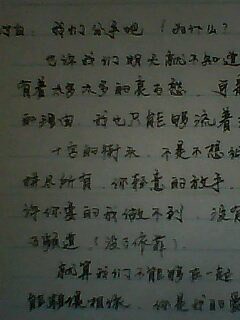 我们分手吧（为什么？
也许我们明天就不知道
有着太多太多的哀与愁
的理由 我也只能够流着
十字的街头 不是不想
拼尽所有 你轻意的放手
许你要的我做不到 没
（没了依靠）
就算我们不能够在一起
能 你是我的最